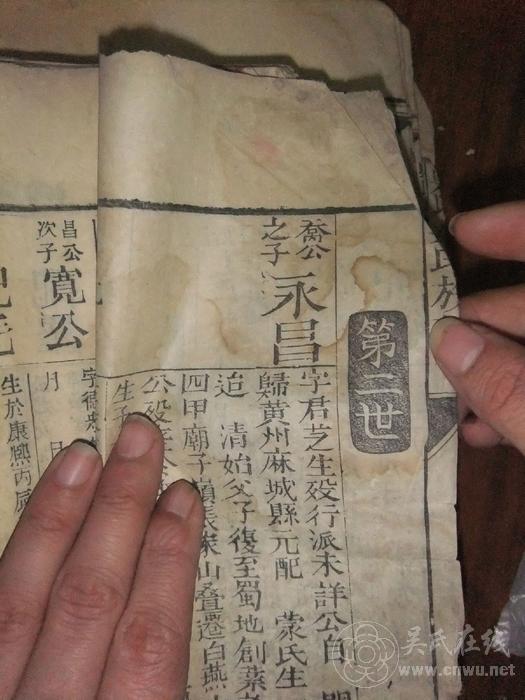 氏族
第二世
喬公
之子
永昌
字君芝生殁行派未詳公自
歸黃州麻城縣元配 蒙氏生
迨 清始父子復至蜀地創業
四甲廟子嶺張家山叠遷白燕
公殁
生子
昌公
次子
寬公
字德
月 日
生於康熙丙辰
吴氏在线
www.cnwu.net